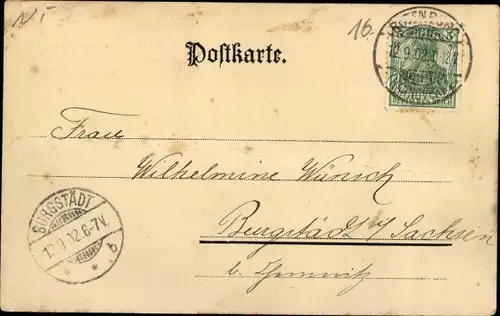 16.
Postkarte.
5
DEUTSCHES REICH
Frau
Wilhelmine Wünsch
Burgstädt i/ Sachsen
b. Chemnitz
BURGSTÄDT
6-7N.
* * b